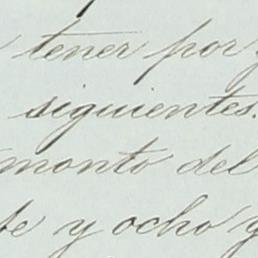 tener por
siguientes.
monto del
y ocho y